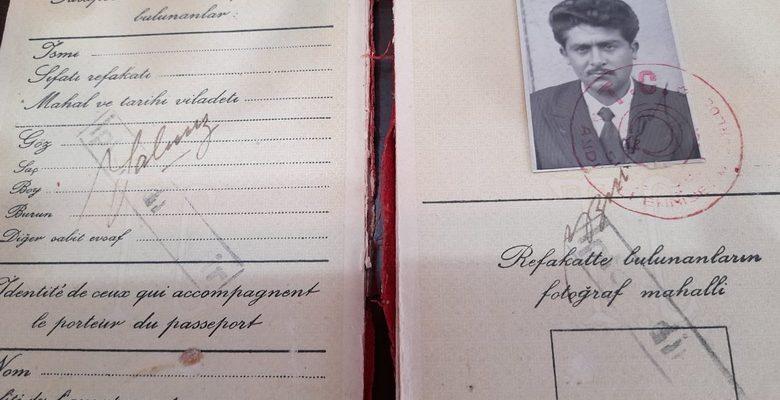 bulunanlar:
İsmi
Sıfatı refakatı
Mahal ve tarihi viladeti
Göz
Saç
Boy
Burun
Diğer sabit evsaf
Yalnız
Identité de ceux qui accompagnent
le porteur du passeport
Nom
T.C.
Refakatte bulunanların
fotoğraf mahalli